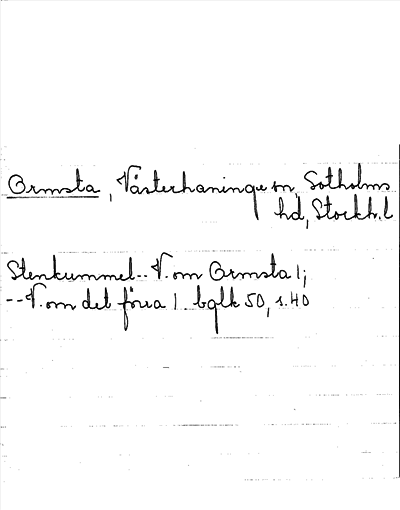 Ormsta, Västerhaninge sn, Sotholms
hd, Stockh.l
Stenkummel-- V. om Ormsta 1;
-- V. om det förra 1. bglk 50, s. 40